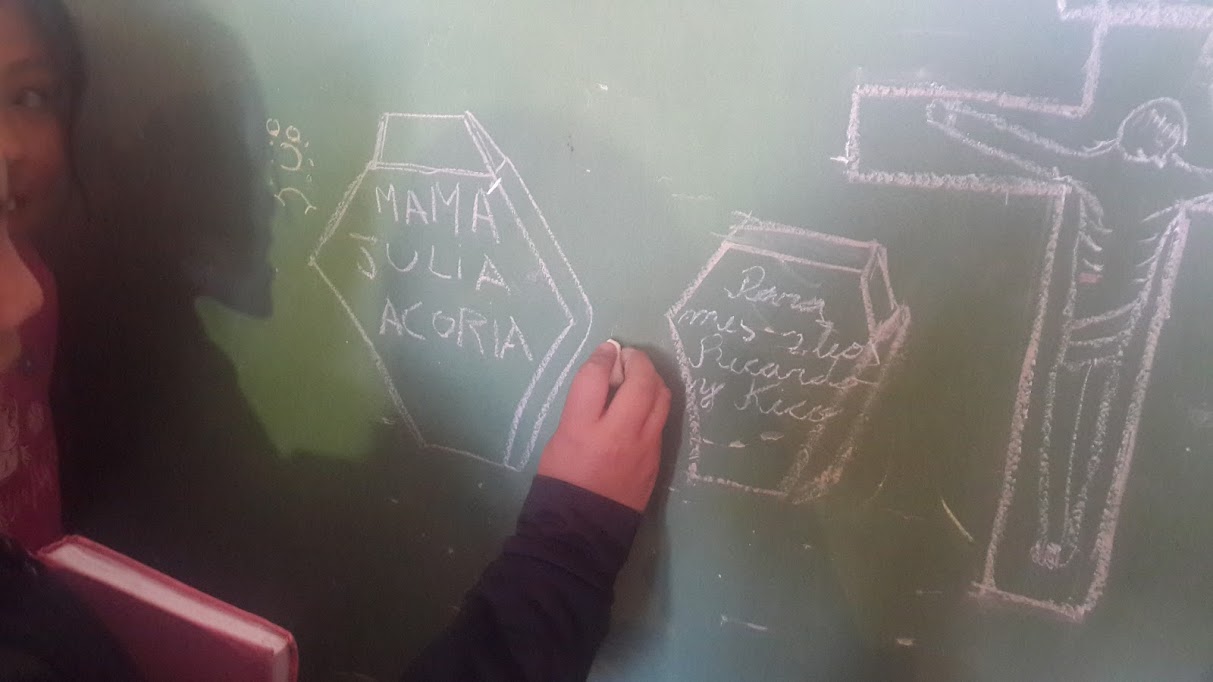 MAMA
JULIA
ACORIA
Para
mis
Ricardo
y Kico